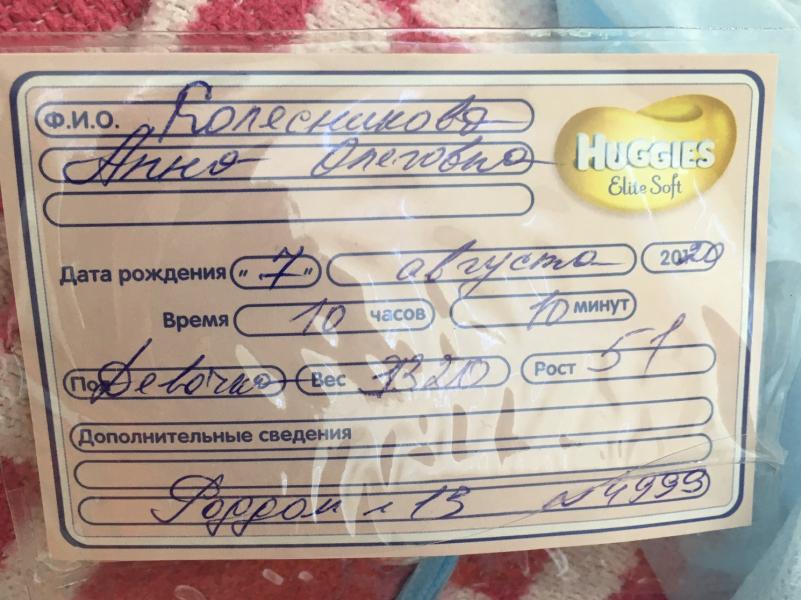 Ф.И.О. Колесникова
Анна Олеговна
HUGGIES
Elite Soft
Дата рождения "7" августа 2020
Время 10 часов 10 минут
Пол Девочка Вес 3320 Рост 51
Дополнительные сведения
Роддом 13 4999